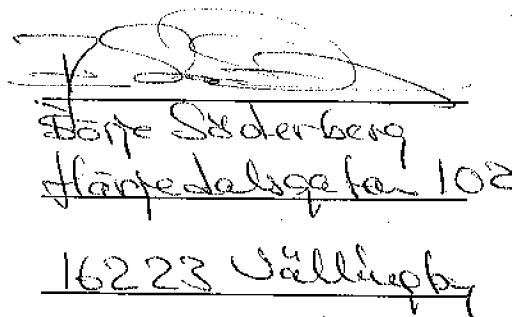 Börje Söderberg
Härjedalsgatan 102
16223 Vällingby